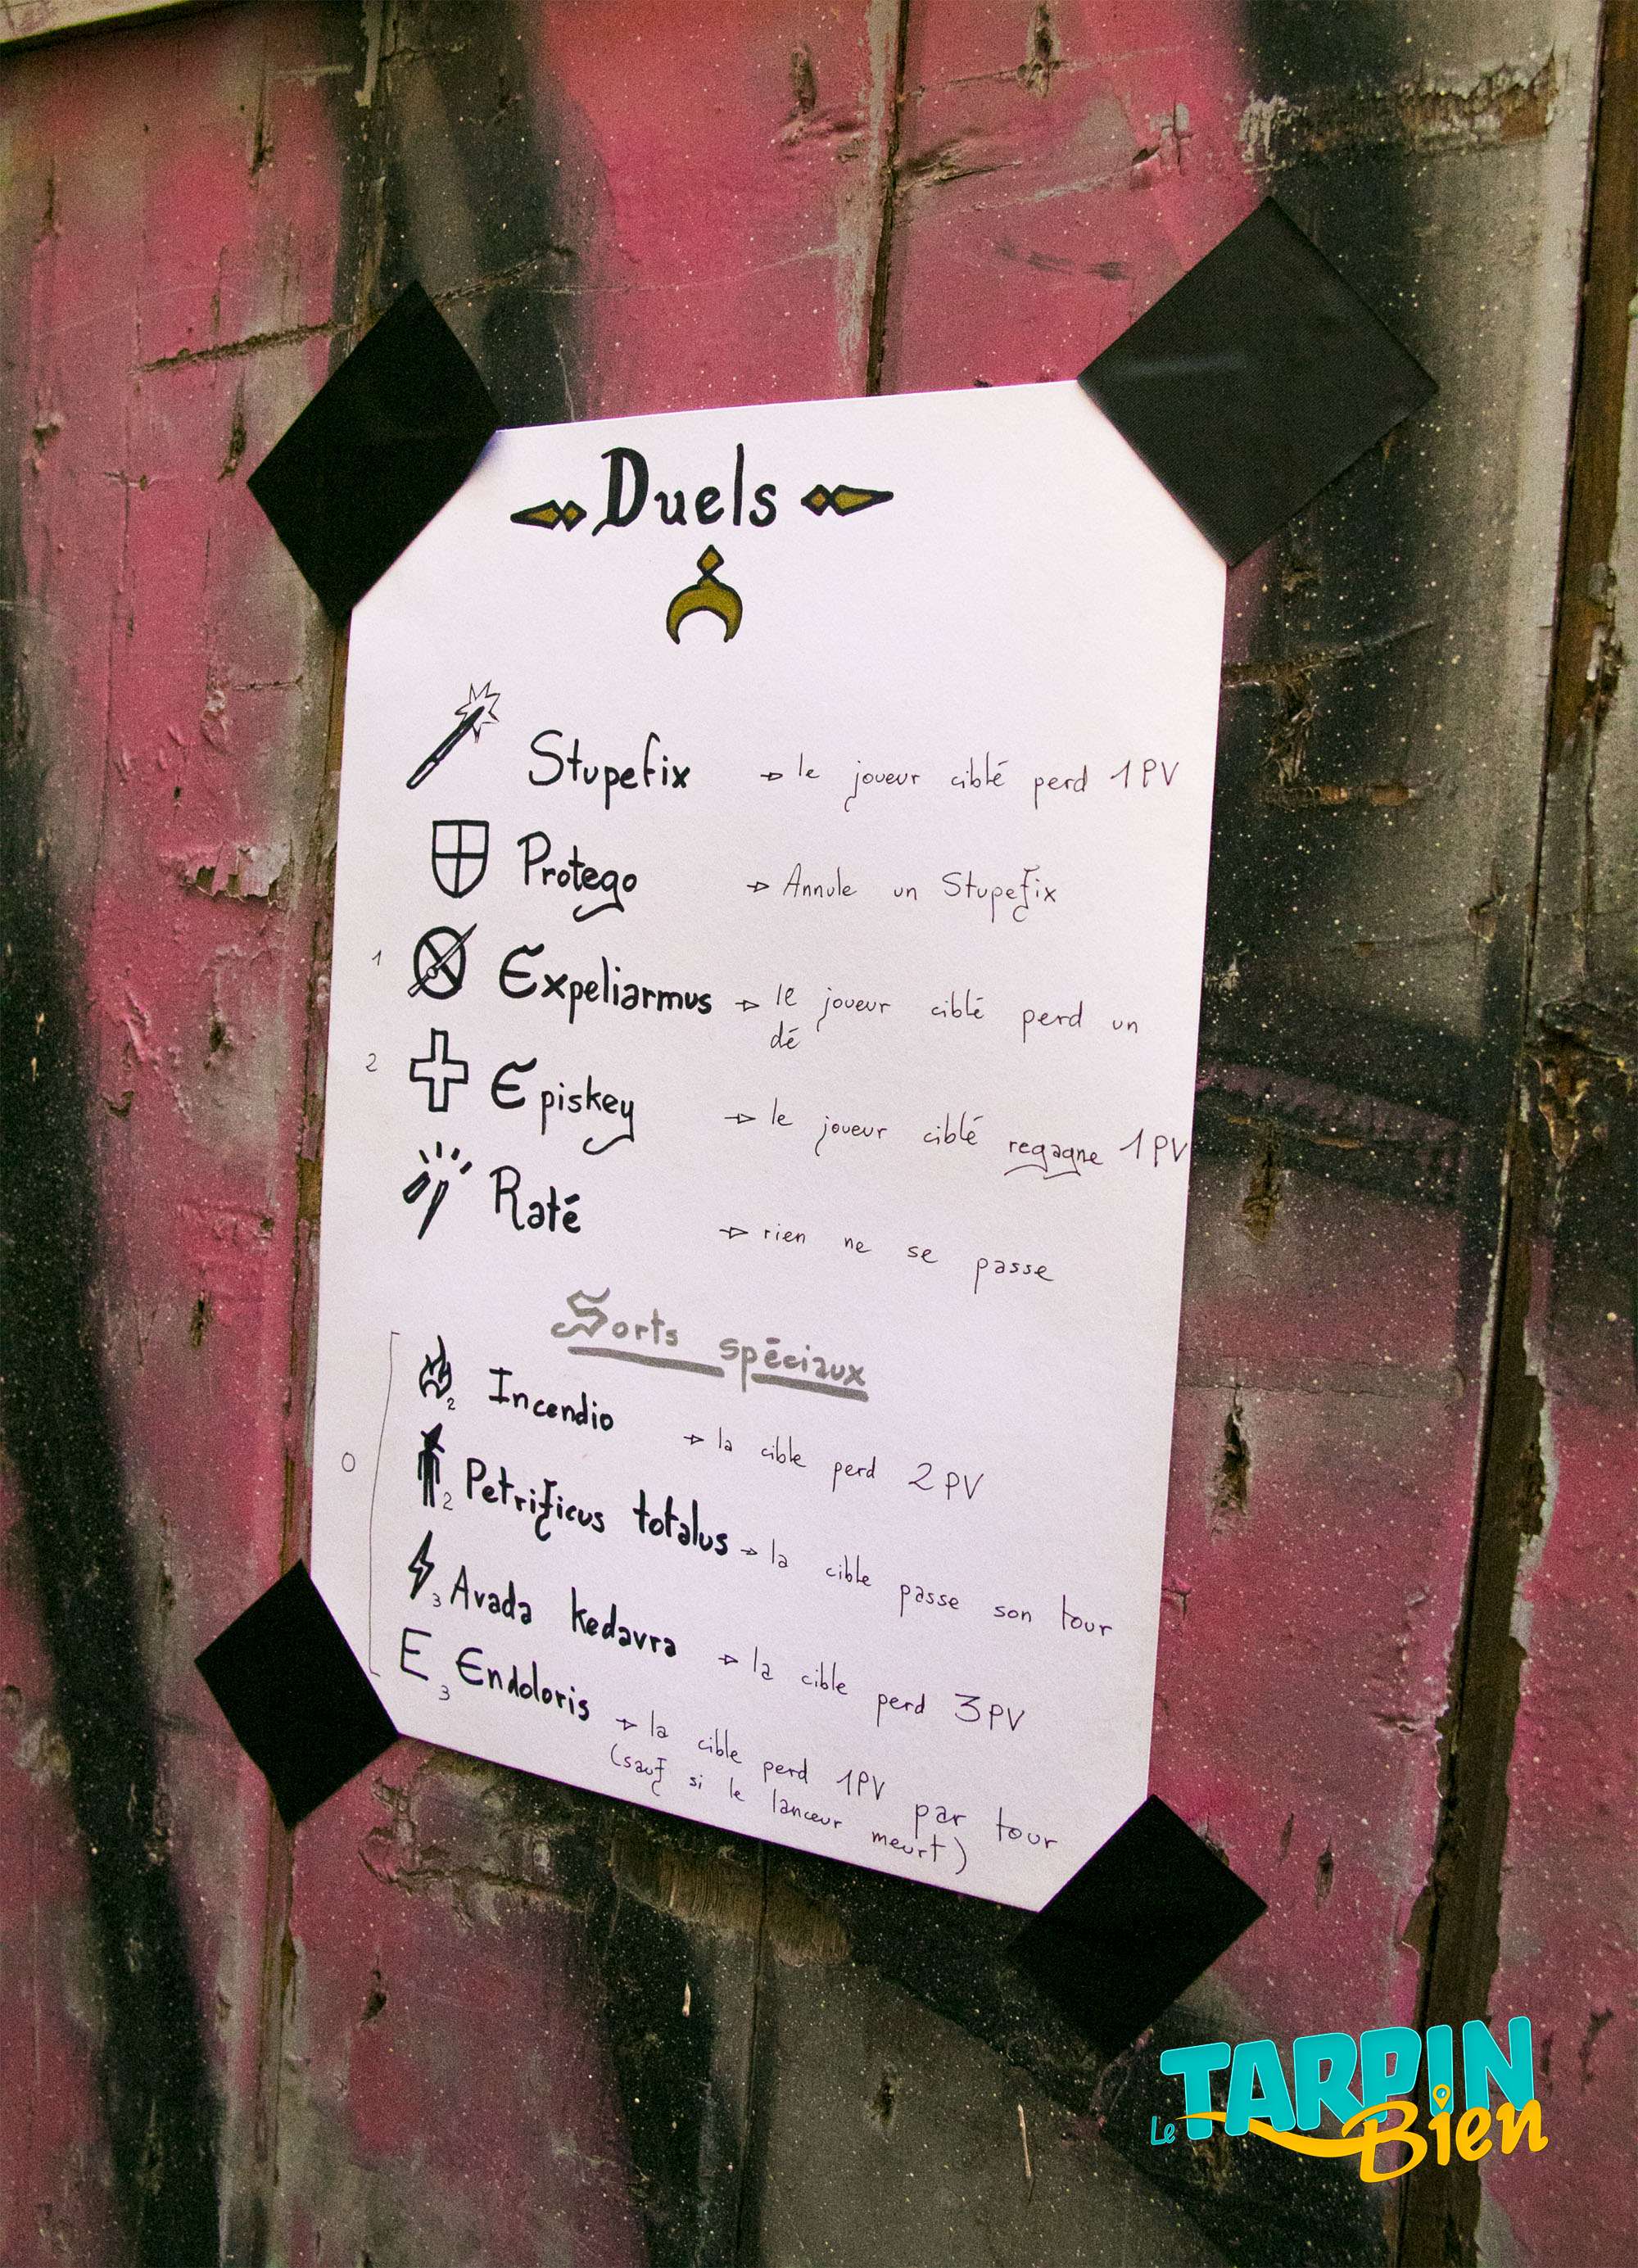 Duels
Stupefix → le joueur ciblé perd 1 PV
Protego → Annule un Stupefix
1 Expeliarmus → le joueur ciblé perd un
dé
2 Episkey → le joueur ciblé regagne 1 PV
Raté → rien ne se passe
Sorts spéciaux
2 Incendio → la cible perd 2 PV
0
2 Petrificus totalus → la cible passe son tour
3 Avada kedavra → la cible perd 3 PV
E 3 Endoloris → la cible perd 1 PV par tour
(sauf si le lanceur meurt)
Le TARPIN
Bien